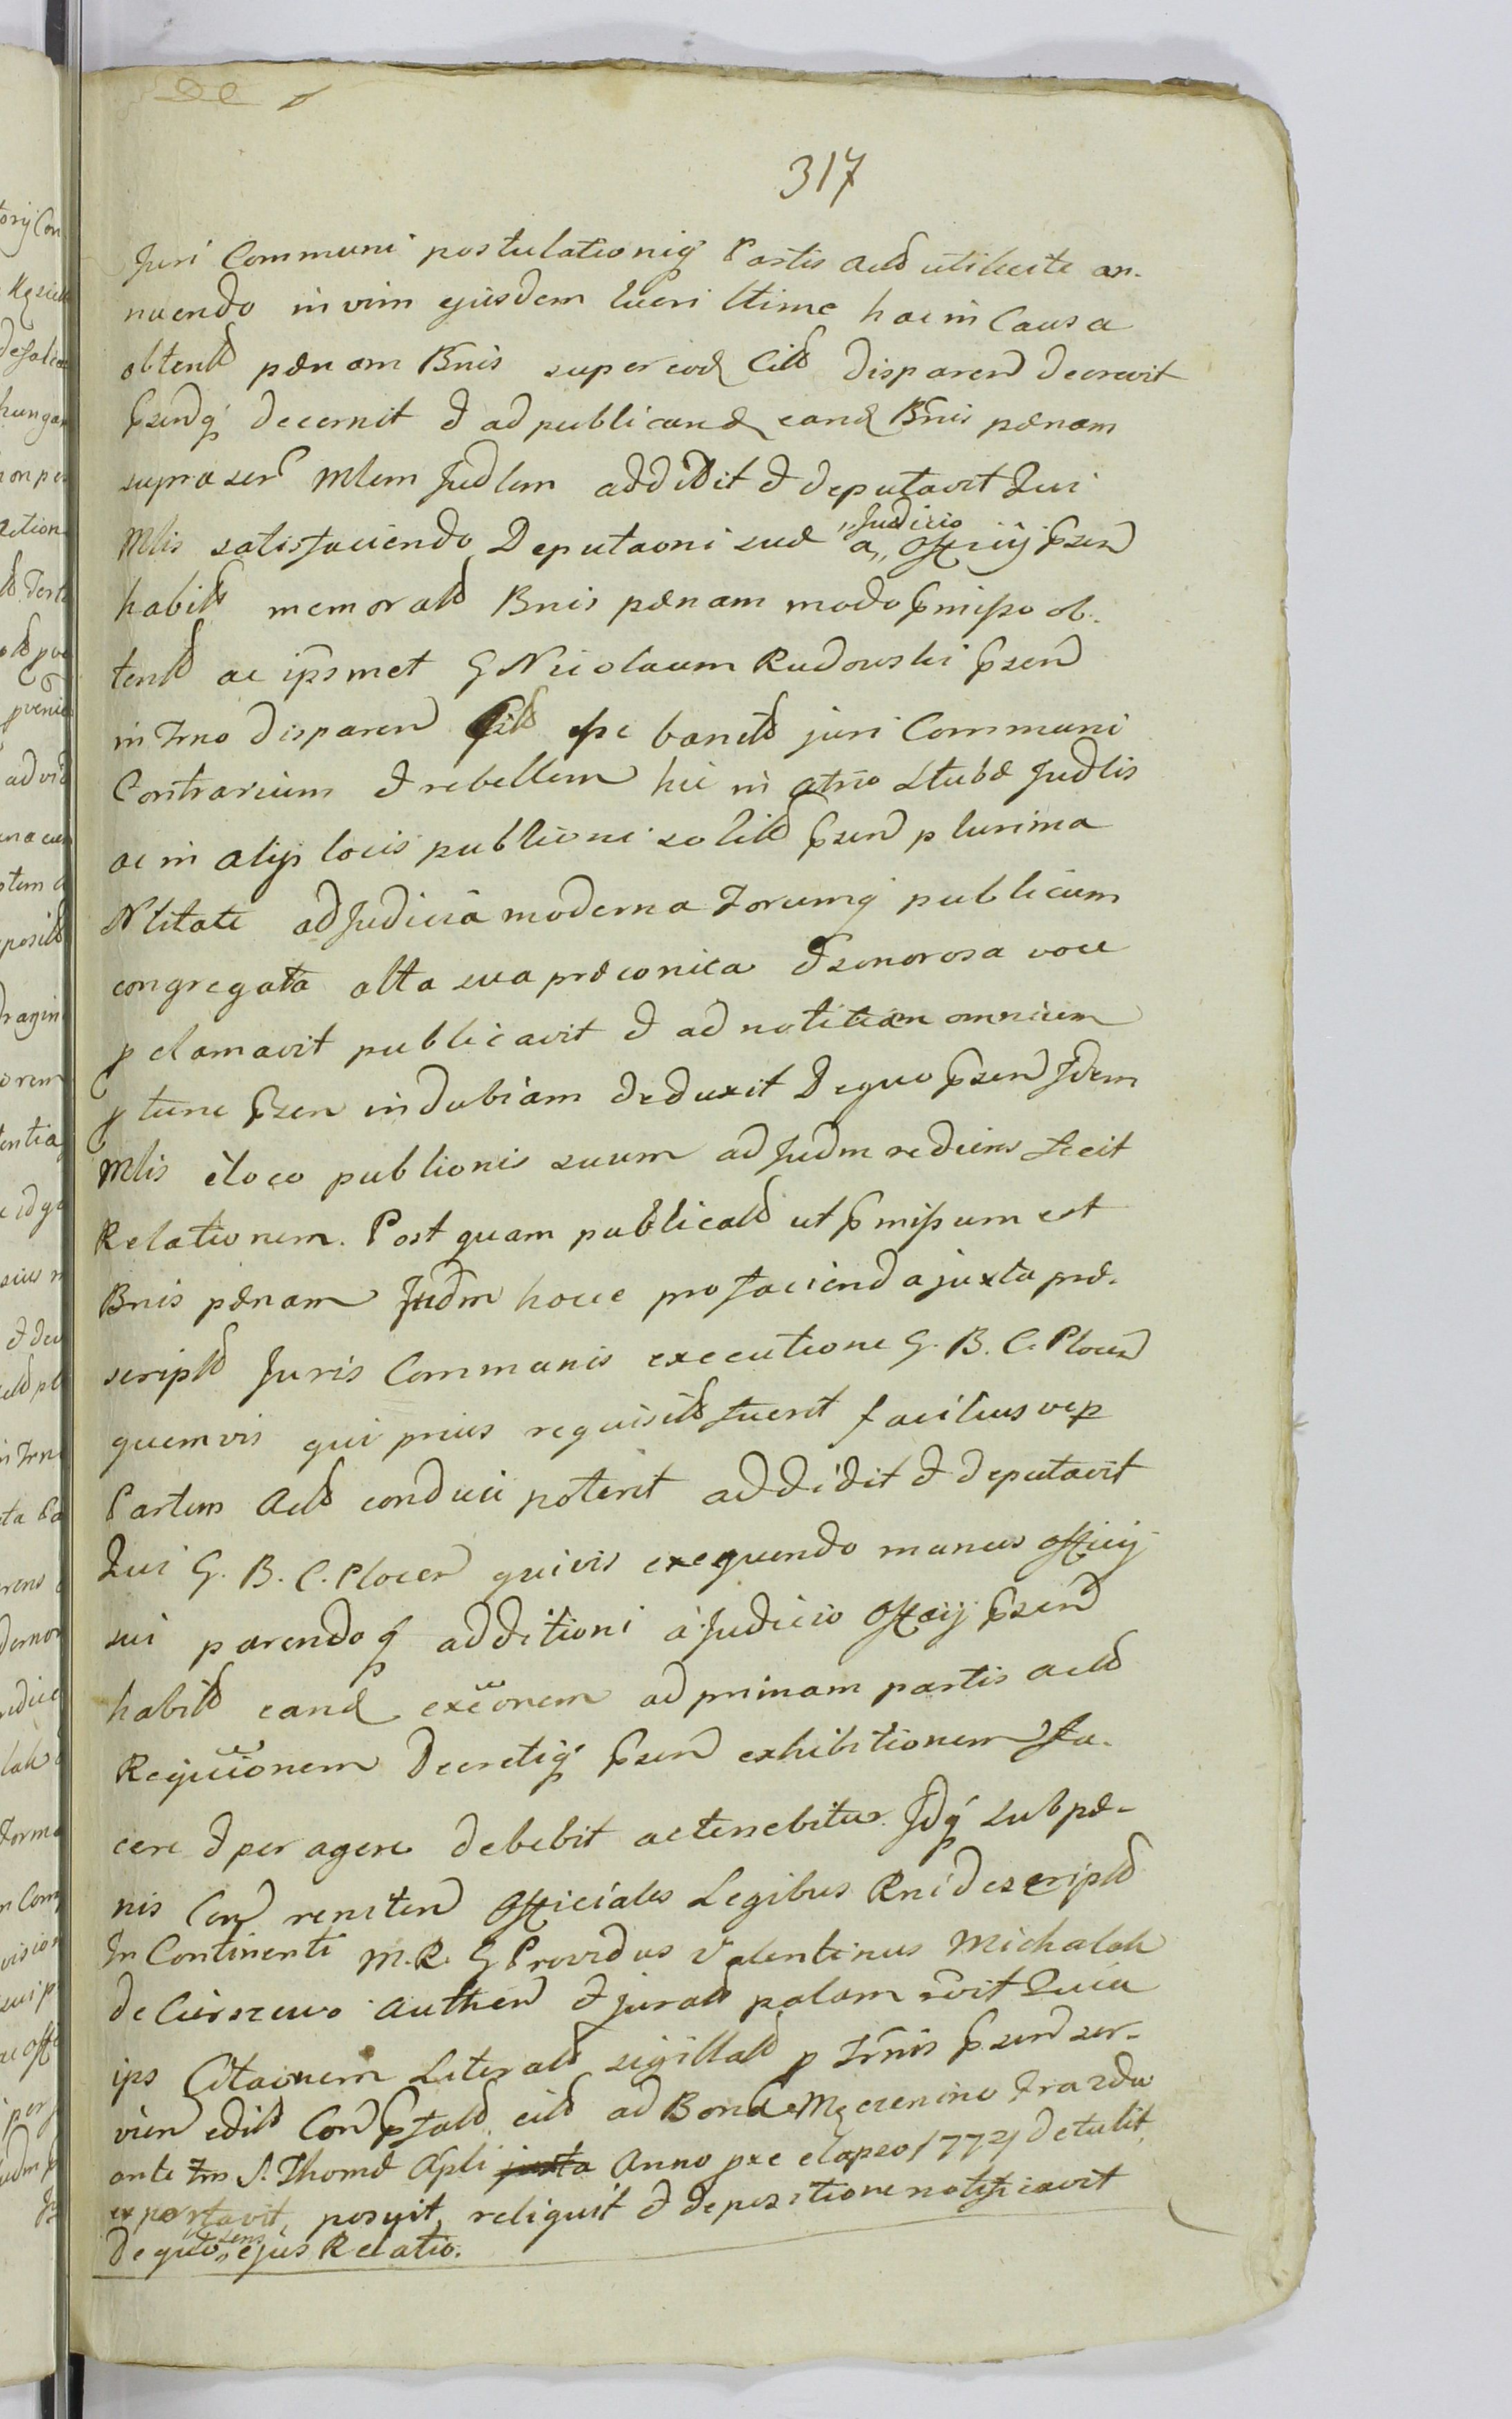 317
Juri Communi postulationiq̃ Partis Actã utilicite an-
nuendo in vim ejusdem lucri ltimẽ hac in Causa
obtentã pænam Bnis super eod Citã disparen decrevit
p̃sendq̃ decernit & ad publicand eand Bnis pænam
supra scr̃ Mlem Judlem addidit & deputavit Qui
Mlis satisfaciendo Deputaõni suæ à „Judicio„ Officij p̃sen
habitã memoratã Bnis pænam modo p̃misso ob-
tentã ac ipsmet G Nicolaum Rudowski p̃sen
in Trno disparen Citã esse bannitã juri Communi
Contrarium & rebellem hic in atrio Stubæ Judlis
ac in alijs locis publioni solitã p̃sen plurima
Nlitate ad Judicia moderna Forumq̃ publicum
congregata alta sua præconica & sonorosa voce
pclamavit publicavit & ad notitiam omnium
p tunc p̃sen indubiam deduxit De quo p̃sen Idem
Mlis è loco publionis suum ad Judm rediens fecit
Relationem. Post quam publicatã ut p̃missum est
Bnis pænam Judm hocce pro facienda juxta præ-
scriptã Juris Communis executione G. B. C. Plocen
quemvis qui prius requisitã fuerit facilius vep
Partem Actã conduci poterit addidit & deputavit
Qui G. B. C. Plocen quivis exequendo munus officij
sui parendoq̃ additioni à Judicio Officij p̃sen
habitã eand exc̃onem ad primam partis actã
Requic̃ionem Decretiq̃ p̃sen exhibitionem fa-
cere & peragere debebit ac tenebitur. Idq̃ sub pæ-
nis Con reniten Officiales Legibus Rni descriptã
In Continenti M. R. G Providus Valentinus Michalak
de Cierszewo authen & juratã palam rc̃vit Quia
ips Citaõnem Literatã sigillatã p Trnis p̃sen ser-
vien editã Con p̃tatã citã ad Bona Męczenino Trazdw
ante Fm S. Thomæ Apli juxta Anno pxe elapso 1772 detulit
exportavit, posuit, reliquit & depositione notificavit
De quo „sens„ ejus Relatio.